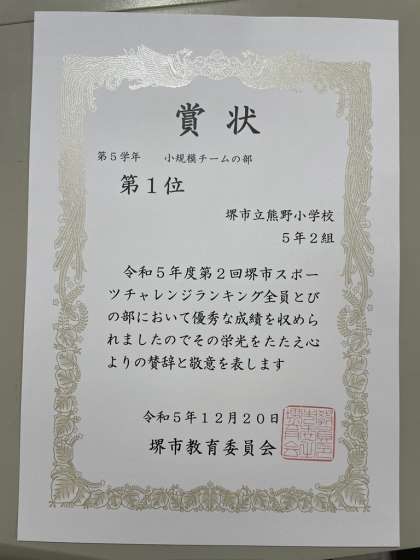 賞状
第５学年　小規模チームの部
第１位
堺市立熊野小学校
５年２組
令和５年度第２回堺市スポー
ツチャレンジランキング全員とび
の部において優秀な成績を収めら
れましたのでその栄光をたたえ心
よりの賛辞と敬意を表します
令和５年１２月２０日
堺市教育委員会